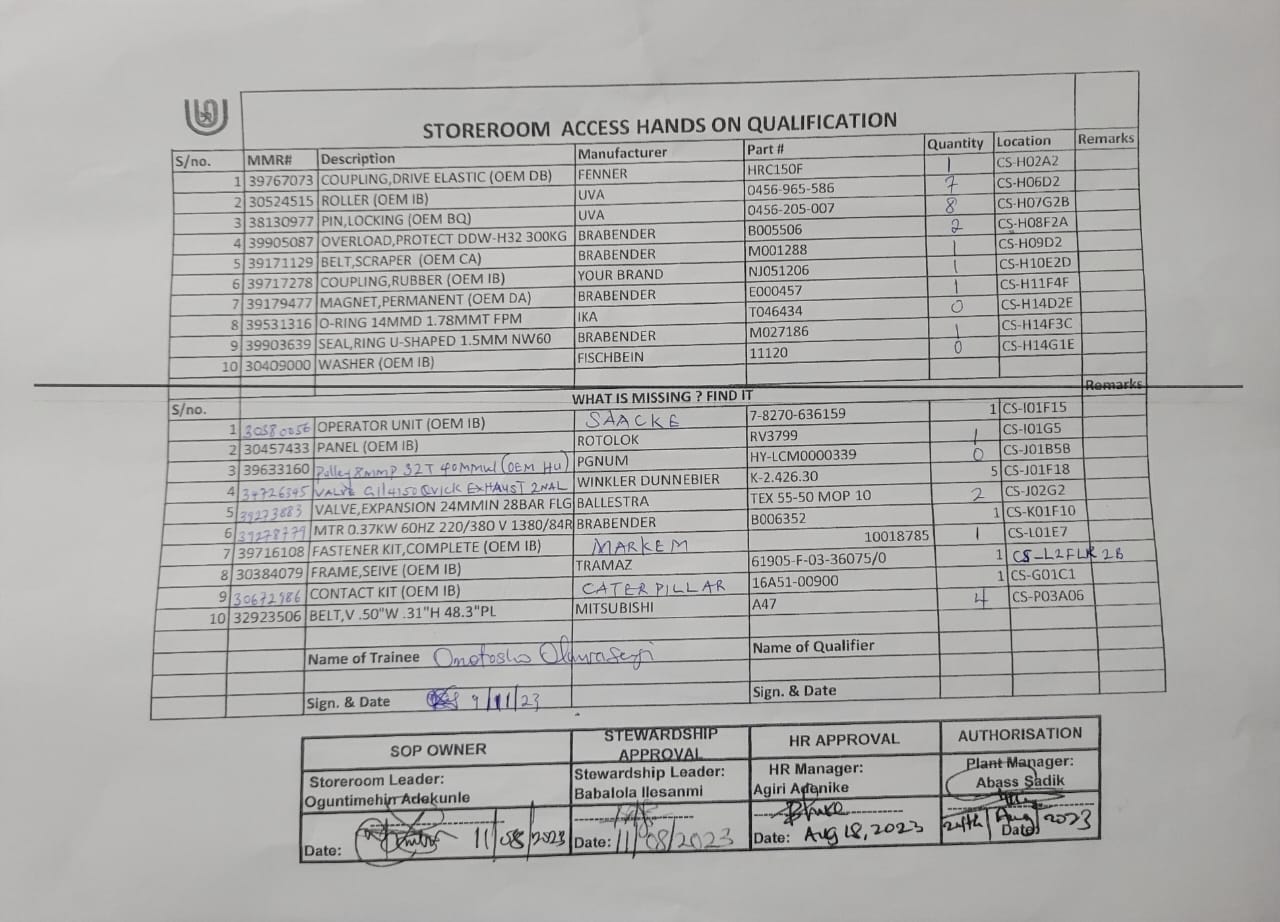 STOREROOM ACCESS HANDS ON QUALIFICATION
S/no. MMR# Description Manufacturer Part # Quantity Location Remarks
1 39767073 COUPLING,DRIVE ELASTIC (OEM DB) FENNER HRC150F 1 CS-H02A2
2 30524515 ROLLER (OEM IB) UVA 0456-965-586 7 CS-H06D2
3 38130977 PIN,LOCKING (OEM BQ) UVA 0456-205-007 8 CS-H07G2B
4 39905087 OVERLOAD,PROTECT DDW-H32 300KG BRABENDER B005506 2 CS-H08F2A
5 39171129 BELT,SCRAPER (OEM CA) BRABENDER M001288 1 CS-H09D2
6 39717278 COUPLING,RUBBER (OEM IB) YOUR BRAND NJ051206 1 CS-H10E2D
7 39179477 MAGNET,PERMANENT (OEM DA) BRABENDER E000457 1 CS-H11F4F
8 39531316 O-RING 14MMD 1.78MMT FPM IKA T046434 0 CS-H14D2E
9 39903639 SEAL,RING U-SHAPED 1.5MM NW60 BRABENDER M027186 1 CS-H14F3C
10 30409000 WASHER (OEM IB) FISCHBEIN 11120 0 CS-H14G1E
S/no. WHAT IS MISSING ? FIND IT Remarks
1 30580056 OPERATOR UNIT (OEM IB) SAACKE 7-8270-636159 1 CS-I01F15
2 30457433 PANEL (OEM IB) ROTOLOK RV3799 1 CS-I01G5
3 39633160 Pulley 8mmP 32T 40mmwl (OEM HU) PGNUM HY-LCM0000339 0 CS-J01B5B
4 34726345 VALVE G1/4150 QUICK EXHAUST 2NAL WINKLER DUNNEBIER K-2.426.30 5 CS-J01F18
5 39273883 VALVE,EXPANSION 24MMIN 28BAR FLG BALLESTRA TEX 55-50 MOP 10 2 CS-J02G2
6 39278779 MTR 0.37KW 60HZ 220/380 V 1380/84R BRABENDER B006352 1 CS-K01F10
7 39716108 FASTENER KIT,COMPLETE (OEM IB) MARKEM 10018785 1 CS-L01E7
8 30384079 FRAME,SEIVE (OEM IB) TRAMAZ 61905-F-03-36075/0 1 CS-L2FLR 2B
9 30672986 CONTACT KIT (OEM IB) CATERPILLAR 16A51-00900 1 CS-G01C1
10 32923506 BELT,V .50"W .31"H 48.3"PL MITSUBISHI A47 4 CS-P03A06
Name of Trainee Omotosho Oluwasegi Name of Qualifier
Sign. & Date 9/11/23 Sign. & Date
SOP OWNER STEWARDSHIP APPROVAL HR APPROVAL AUTHORISATION
Storeroom Leader: Stewardship Leader: HR Manager: Plant Manager:
Oguntimehin Adekunle Babalola Ilesanmi Agiri Adenike Abass Sadik
Date: 11/08/2023 Date: 11/08/2023 Date: Aug 18, 2023 24th Aug 2023 Date: